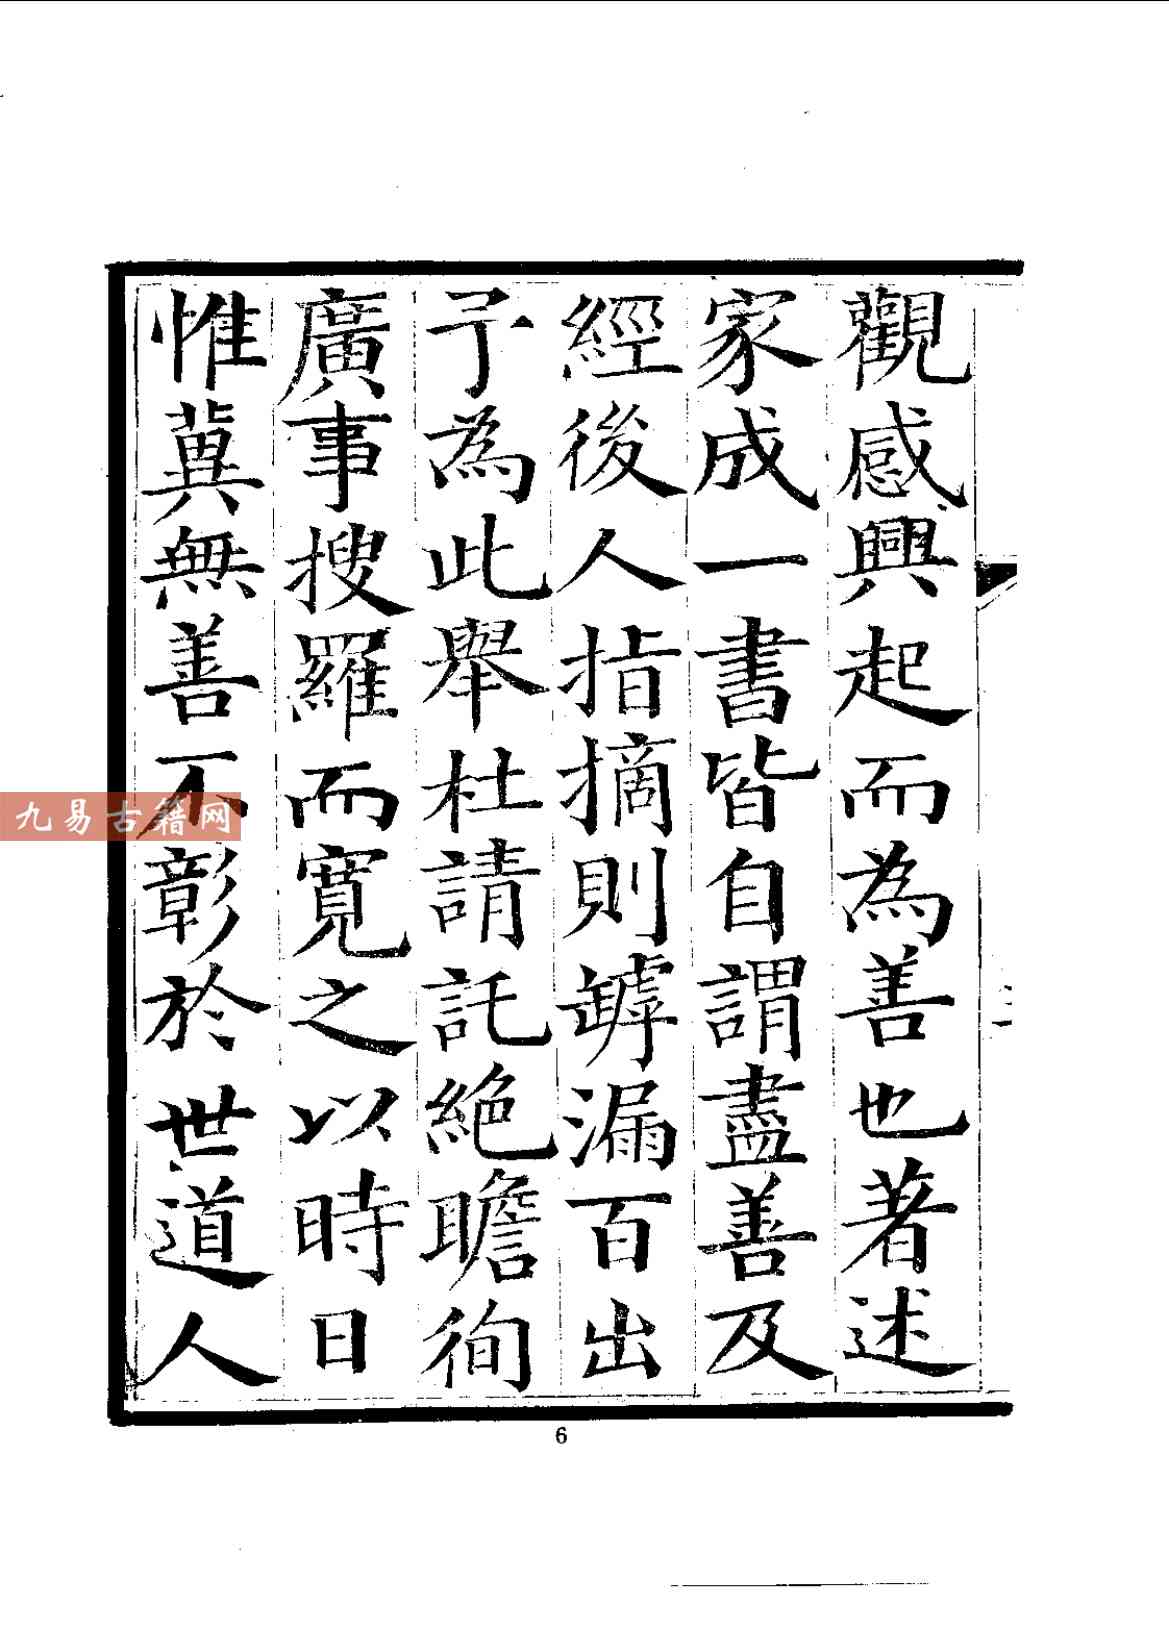 觀感興起而為善也著述
家成一書皆自謂盡善及
經後人指摘則罅漏百出
予為此舉杜請託絕瞻徇
廣事搜羅而寬之以時日
惟冀無善不彰於世道人
6
九易古籍网